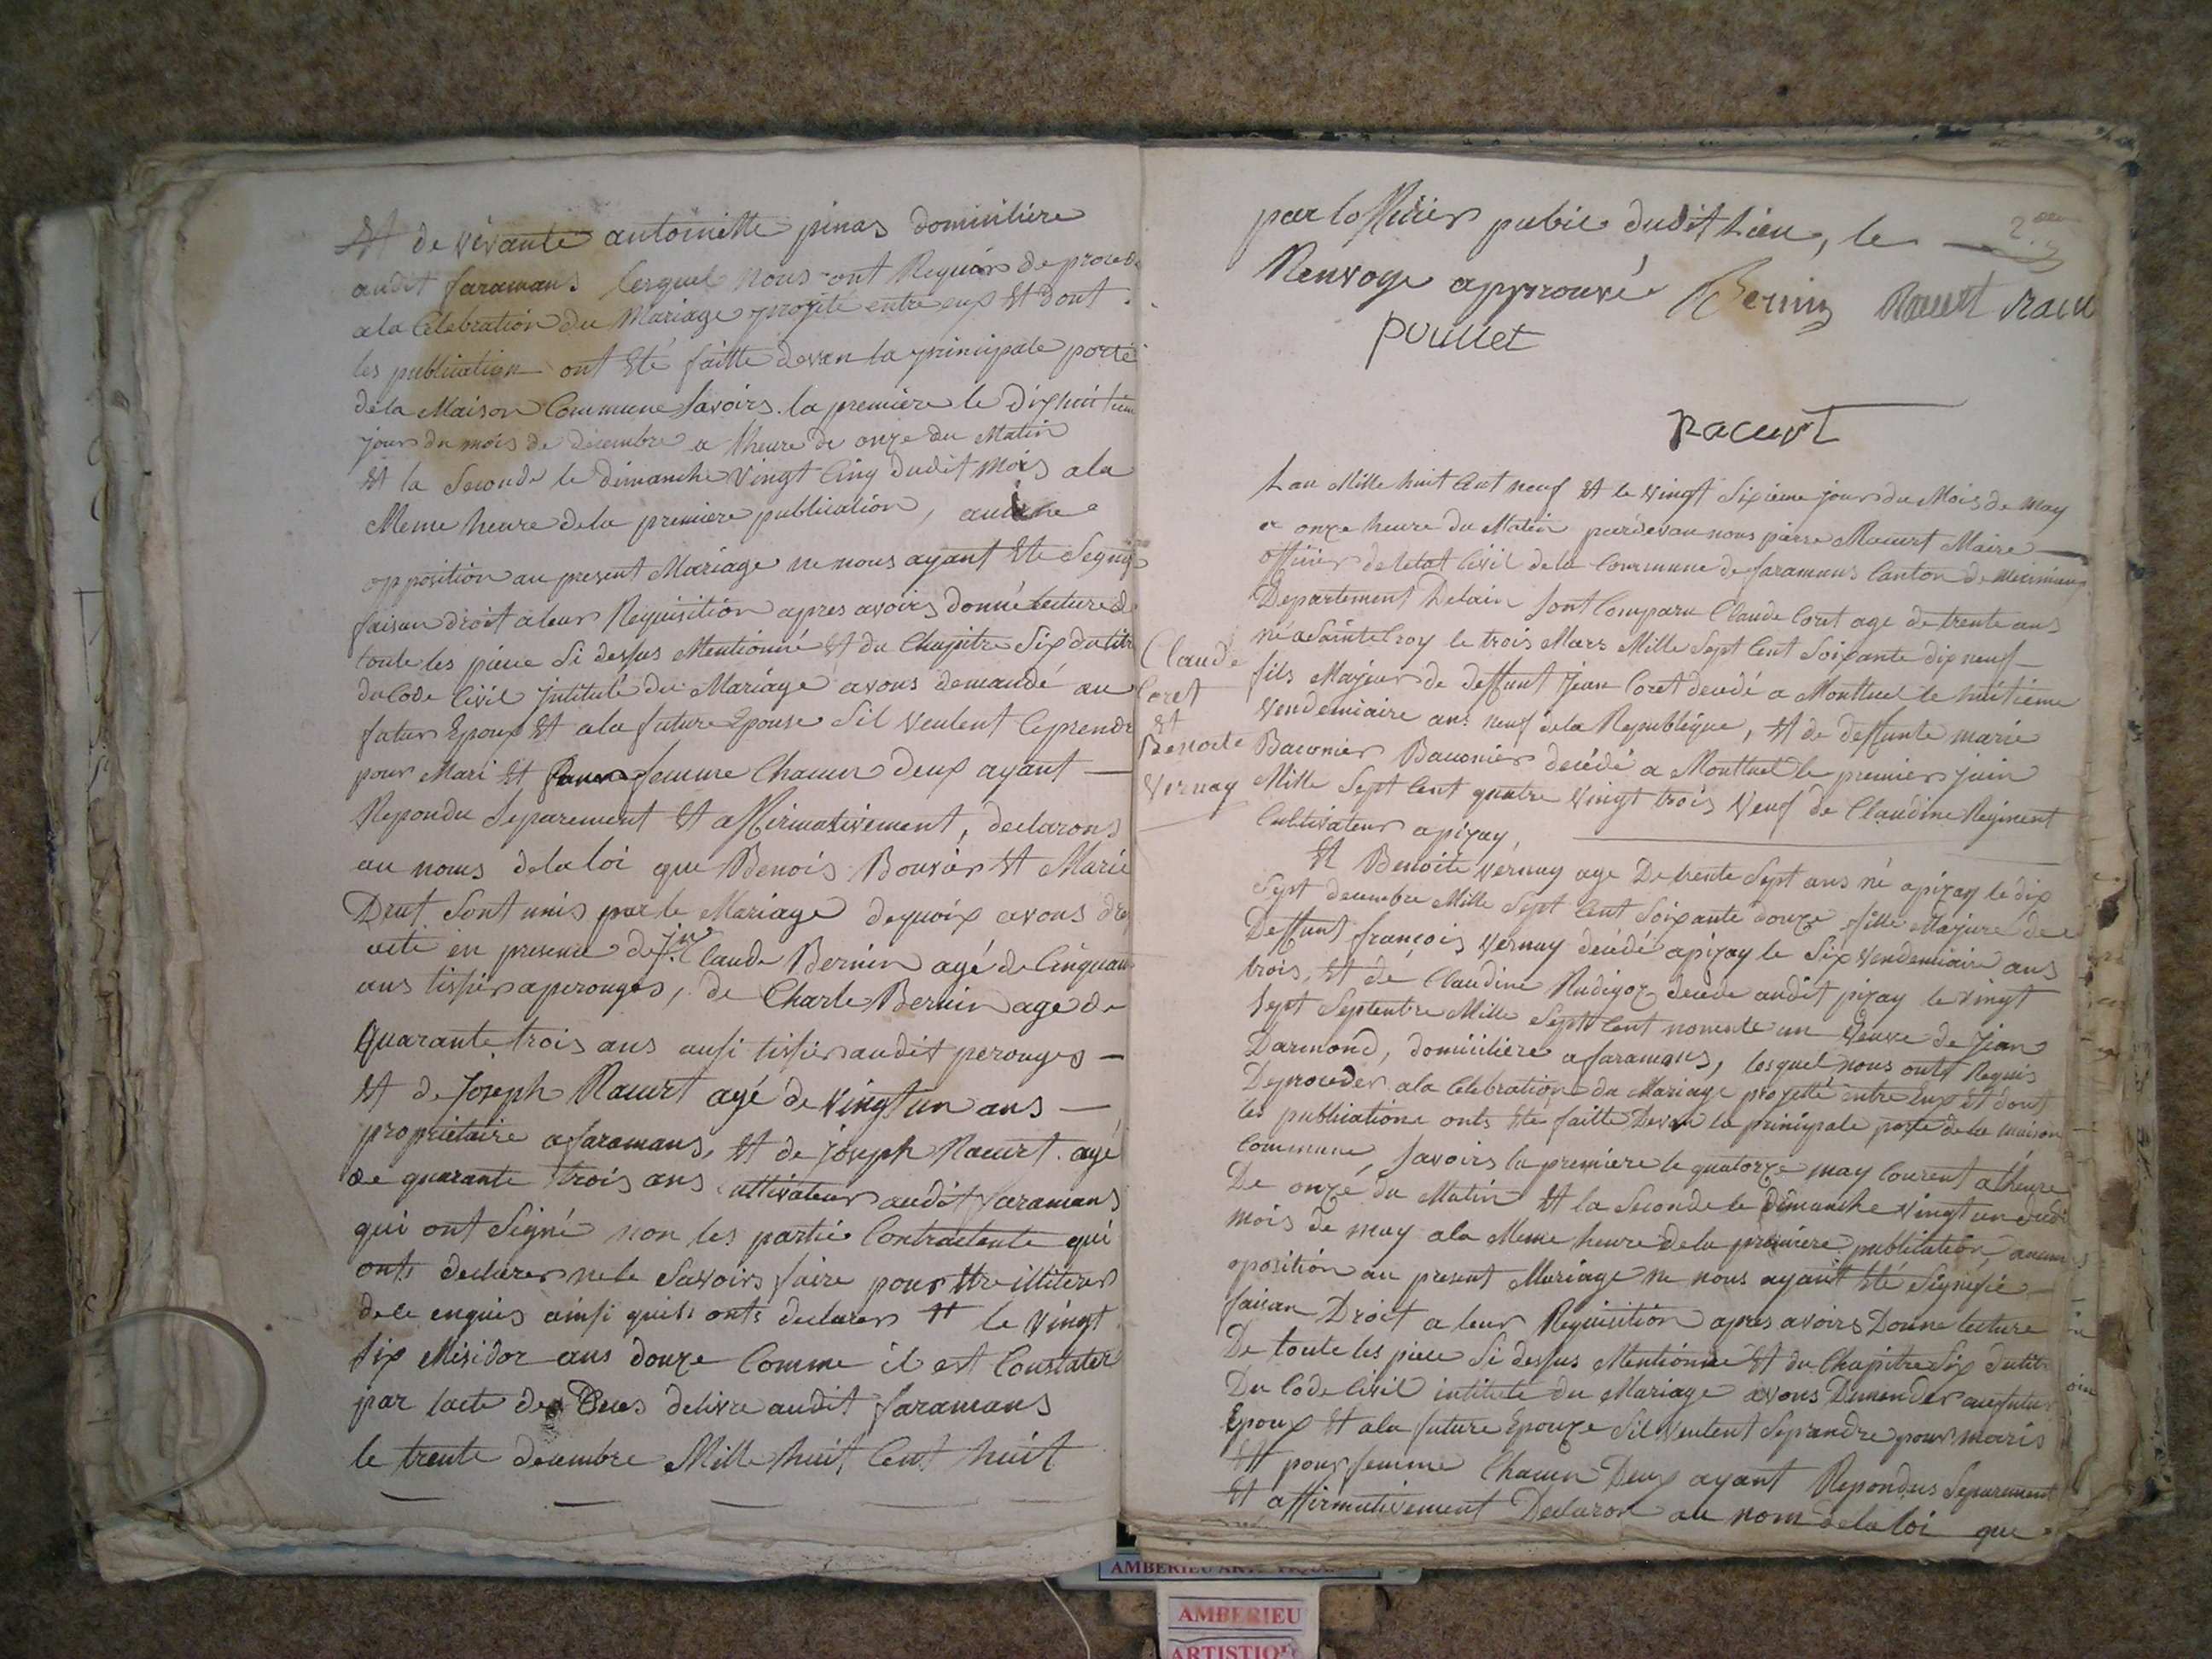 Et de vivante antoinette pinas domicilière
audit faramans lesquel nous ont Requiér de procede
a la Celebration du Mariage projeté entre eux Et dont
les publication ont Eté faitte devan la principale porte
de la Maison Commune Savoirs la premiere le dixhuitiem
jour du mois de decembre a lheure de onze du Matin
Et la Seconde le dimanche Vingt Cinq dudit Mois a la
Meme heure dela premiere publication, aucune
opposition au present Mariage ne nous ayant Ete Signif
faisan droit a leur Requisition apres avoirs donné lecture d
toute les piece Si dessus Mentionné Et du Chapitre Six du titr
du Code Civil Intitulé du Mariage avons demandé au
futur Epoux Et a la future Epouse Sil Veulent Ce prendr
pour Mari Et femme Chacun deux ayant —
Repondu Separement Et affirmativement, declarons
au noms de la loi que Benois Bouvier Et Marie
Drut Sont unis par le Mariage dequoix avons dre
acte en presence de Jn Claude Bernin agé de Cinquan
ans tissier a perouges, de Charle Bernin age de
Quarante trois ans ausi tissier audit perouges —
Et de Joseph Racurt agé de Vingt un ans —
proprietaire a faramans, Et de Joseph Racurt agé
de quarante trois ans Cultivateur audit faramans
qui ont Signé non les partie Contractente qui
onts declarer ne le Savoirs faire pour Etre illiterer
de ce enquis ainsi quils onts declarer # le Vingt
Six Mesidor ans douze Comme il est Constater
par lacte de Deces delivre audit faramans
le trente decembre Mille huit Cent huit
par lofficier public dudit Lieu, le
Renvoye approuvé Bernin Racurt Racu
pouillet
Racurt
Lan Mille huit Cent neuf Et le Vingt Sixieme jour du Mois de May
a onze heure du Matin pardevan nous pierre Racurt Maire —
officier de letat Civil de la Commune de faramans Canton de Meximieux
Departement Delain Sont Comparu Claude Coret age de trente ans
né a Sainte Croy le trois Mars Mille Sept Cent Soixante dix neuf —
fils Majeur de deffunt Jean Coret decedé a Montluel le huitieme
Vendemiaire ans neuf de la Republique, Et de deffunte marie
Claude
Coret
Et
Benoite
Vernay
Baconier Baconier decédé a Montluel le premier juin
Mille Sept Cent quatre Vingt trois Veuf de Claudine Reginent
Cultivateur a pizay
Et Benoite Vernay age De trente Sept ans né a pizay le dix
Sept decembre Mille Sept Cent Soixante douze fille Majure de
Deffunt françois Vernay decédé a pizay le Six Vendemiaire ans
trois, Et de Claudine Rudigoz decede audit pizay le Vingt
Sept Septembre Mille Sept Cent nonente un Veuve de Jean
Darmond, domicilière a faramans, lesquel nous onts Requis
De proceder a la Celebration du Mariage projetté entre Eux Et dont
les publications onts Eté faitte Devan la principale porte de la maison
Commune, Savoirs la premiere le quatorze may Courent a lheure
De onze du Matin Et la Seconde le dimanche Vingt un dudi
mois de may a la Meme heure de la premiere publication, aucun
oposition au present Mariage ne nous ayant Eté Signifie —
faisan Droit a leur Requisition apres avoirs Donne lecture
De toute les piece Si dessus Mentionnee Et du Chapitre Six du titr
Du Code Civil intitule du Mariage avons Demender au futur
Epoux Et a la future Epouze Sil Veulent Se prandre pour maris
Et pour femme Chacun Deux ayant Repondus Separement
Et affirmativement Declaron au nom de la loi que
AMBERIEU
AMBERIEU
ARTISTIQU